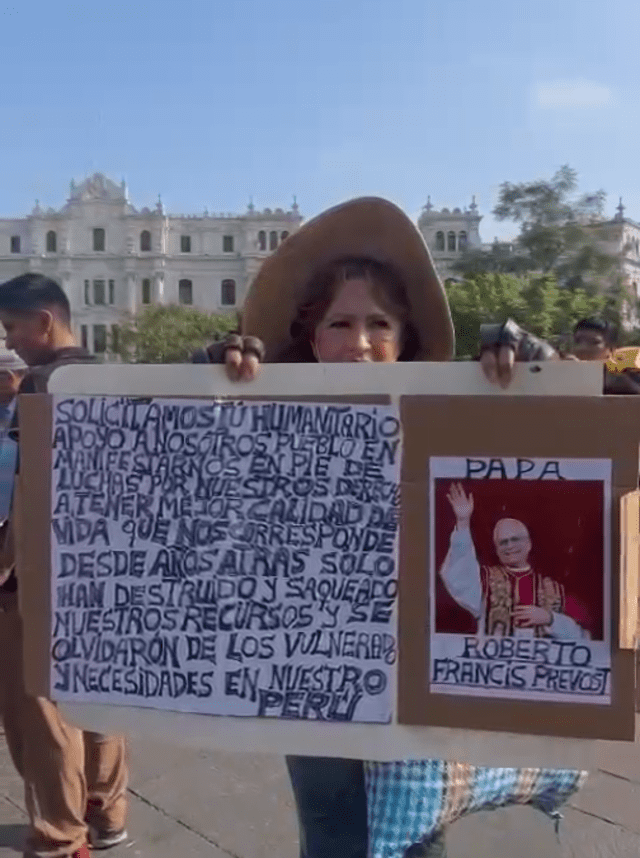 SOLICITAMOS TÚ HUMANITARIO
APOYO A NOSOTROS PUEBLO EN
MANIFESTARNOS EN PIE DE
LUCHAS POR NUESTROS DERECH
A TENER MEJOR CALIDAD DE
VIDA QUE NOS CORRESPONDE
DESDE AÑOS ATRAS SOLO
HAN DESTRUIDO Y SAQUEADO
NUESTROS RECURSOS Y SE
OLVIDARÓN DE LOS VULNERAB
Y NECESIDADES EN NUESTRO
PERÚ
PAPA
ROBERTO
FRANCIS PREVOST